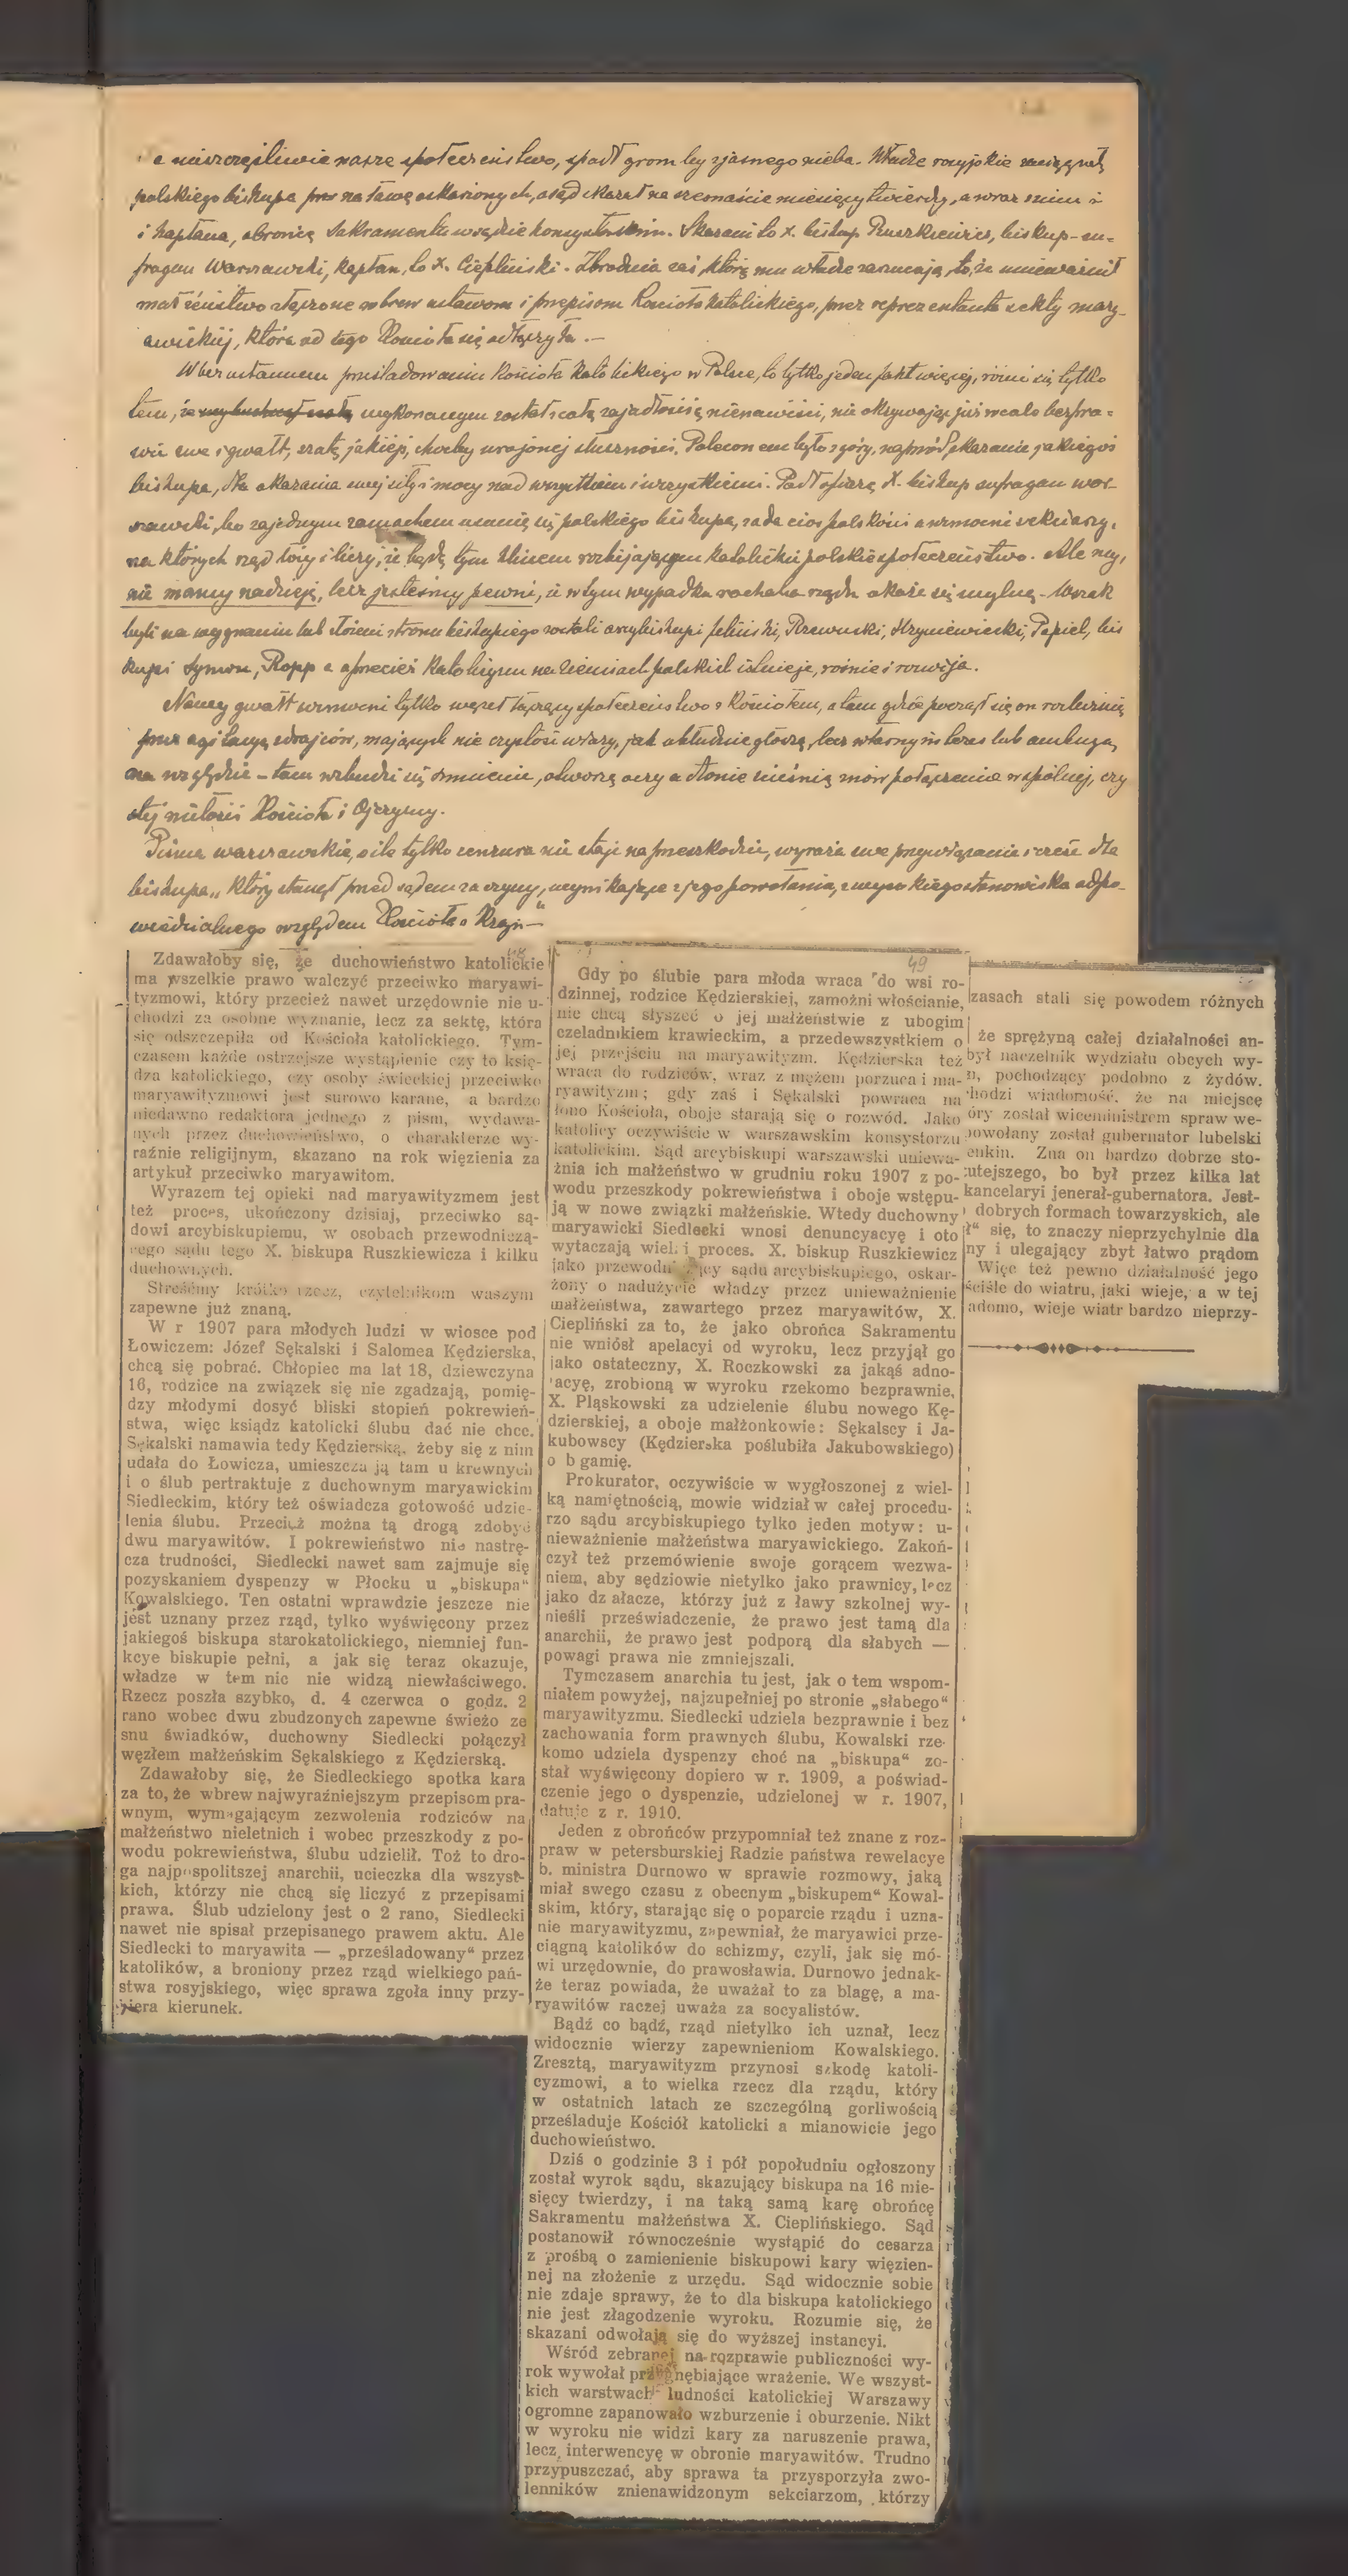 a nieszczęśliwie nasze społeczeństwo, spadł grom by z jasnego nieba. Władze rosyjskie
polskiego biskupa na ławę oskarżonych, a sąd skazał na szesnaście miesięcy twierdzy, a wraz z nim i
i kapłana, obrońcę Sakramentu w sądzie konsystorskim. Skazani to x. biskup Ruszkiewicz, biskup-su-
fragan Warszawski, kapłan, to x. Ciepliński. Zbrodnia zaś, którą mu władze zarzucają, to, że unieważnił
małżeństwo złączone wbrew ustawom i przepisom Kościoła katolickiego, przez reprezentanta sekty mary-
awickiej, która od tego Kościoła się odłączyła. —
W bezustannem prześladowaniu Kościoła katolickiego w Polsce, to tylko jeden fakt więcej, różni się tylko
tem, że wykonanym został z całą zajadłością nienawiści, nie okrywając już wcale bezpra-
wie swe i gwałt, szatą jakiejś, choćby urojonej słuszności. Poleconem było z góry, naprzód skazanie jakiegoś
biskupa, dla okazania swej siły i mocy nad wszystkiem i wszystkiemi. Padł ofiarą X. biskup sufragan war-
szawski, bo za jednym zamachem usunie się polskiego biskupa, zada cios polskości a wzmocni sekciarzy,
na których rząd łoży i liczy, że będą tym klinem rozbijającym katolickie polskie społeczeństwo. Ale my,
nie mamy nadzieję, lecz jesteśmy pewni, że w tym wypadku rachuba rządu okaże się mylną. Wszak
byli na wygnaniu lub złożeni z tronu biskupiego zostali arcybiskupi Feliński, Rzewuski, Hryniewiecki, Popiel, bis
kupi Symon, Ropp a przecież katolicyzm na ziemiach polskich istnieje, rośnie i rozwija.
Nowy gwałt wzmocni tylko węzeł łączący społeczeństwo z Kościołem, a tam gdzie począł się on rozluźnią
przez agitacyę zdrajców, mających nie czystość wiary, jak obłudnie głoszą, lecz własny interes lub ambicyą
na względzie – tam wzbudzi się sumienie, otworzą oczy a dłonie uścisną znów połączenie wspólnej, czy
stej miłości Kościoła i Ojczyzny.
Pisma warszawskie, o ile tylko cenzura nie staje na przeszkodzie, wyraża swe przywiązanie i cześć dla
biskupa „który stanął przed sądem za czyny, wynikające z jego powołania, z wysokiego stanowiska odpo-
wiedzialnego względem Kościoła i Kraju"—
48
Zdawałoby się, że duchowieństwo katolickie
ma wszelkie prawo walczyć przeciwko maryawi-
tyzmowi, który przecież nawet urzędownie nie u-
chodzi za osobne wyznanie, lecz za sektę, która
się odszczepiła od Kościoła katolickiego. Tym-
czasem każde ostrzejsze wystąpienie czy to księ-
dza katolickiego, czy osoby świeckiej przeciwko
maryawityzmowi jest surowo karane, a bardzo
niedawno redaktora jednego z pism, wydawa-
nych przez duchowieństwo, o charakterze wy-
raźnie religijnym, skazano na rok więzienia za
artykuł przeciwko maryawitom.
Wyrazem tej opieki nad maryawityzmem jest
też proces, ukończony dzisiaj, przeciwko są-
dowi arcybiskupiemu, w osobach przewodniczą-
cego sądu tego X. biskupa Ruszkiewicza i kilku
duchownych.
Streśćmy krótko rzecz, czytelnikom waszym
zapewne już znaną.
W r 1907 para młodych ludzi w wiosce pod
Łowiczem: Józef Sękalski i Salomea Kędzierska,
chcą się pobrać. Chłopiec ma lat 18, dziewczyna
16, rodzice na związek się nie zgadzają, pomię-
dzy młodymi dosyć bliski stopień pokrewień-
stwa, więc ksiądz katolicki ślubu dać nie chce.
Sękalski namawia tedy Kędzierską, żeby się z nim
udała do Łowicza, umieszcza ją tam u krewnych
i o ślub pertraktuje z duchownym maryawickim
Siedleckim, który też oświadcza gotowość udzie-
lenia ślubu. Przecież można tą drogą zdobyć
dwu maryawitów. I pokrewieństwo nie nastrę-
cza trudności, Siedlecki nawet sam zajmuje się
pozyskaniem dyspenzy w Płocku u „biskupa"
Kowalskiego. Ten ostatni wprawdzie jeszcze nie
jest uznany przez rząd, tylko wyświęcony przez
jakiegoś biskupa starokatolickiego, niemniej fun-
kcye biskupie pełni, a jak się teraz okazuje,
władze w tem nic nie widzą niewłaściwego.
Rzecz poszła szybko, d. 4 czerwca o godz. 2
rano wobec dwu zbudzonych zapewne świeżo ze
snu świadków, duchowny Siedlecki połączył
węzłem małżeńskim Sękalskiego z Kędzierską.
Zdawałoby się, że Siedleckiego spotka kara
za to, że wbrew najwyraźniejszym przepisom pra-
wnym, wymagającym zezwolenia rodziców na
małżeństwo nieletnich i wobec przeszkody z po-
wodu pokrewieństwa, ślubu udzielił. Toż to dro-
ga najpospolitszej anarchii, ucieczka dla wszyst-
kich, którzy nie chcą się liczyć z przepisami
prawa. Ślub udzielony jest o 2 rano, Siedlecki
nawet nie spisał przepisanego prawem aktu. Ale
Siedlecki to maryawita — „prześladowany" przez
katolików, a broniony przez rząd wielkiego pań-
stwa rosyjskiego, więc sprawa zgoła inny przy-
biera kierunek.
49
Gdy po ślubie para młoda wraca do wsi ro-
dzinnej, rodzice Kędzierskiej, zamożni włościanie,
nie chcą słyszeć o jej małżeństwie z ubogim
czeladnikiem krawieckim, a przedewszystkiem o
jej przejściu na maryawityzm. Kędzierska też
wraca do rodziców, wraz z mężem porzuca i ma-
ryawityzm; gdy zaś i Sękalski powraca na
łono Kościoła, oboje starają się o rozwód. Jako
katolicy oczywiście w warszawskim konsystorzu
katolickim. Sąd arcybiskupi warszawski uniewa-
żnia ich małżeństwo w grudniu roku 1907 z po-
wodu przeszkody pokrewieństwa i oboje wstępu-
ją w nowe związki małżeńskie. Wtedy duchowny
maryawicki Siedlecki wnosi denuncyacyę i oto
wytaczają wielki proces. X. biskup Ruszkiewicz
jako przewodniczący sądu arcybiskupiego, oskar-
żony o nadużycie władzy przez unieważnienie
małżeństwa, zawartego przez maryawitów, X.
Ciepliński za to, że jako obrońca Sakramentu
nie wniósł apelacyi od wyroku, lecz przyjął go
jako ostateczny, X. Roczkowski za jakąś adno-
tacyę, zrobioną w wyroku rzekomo bezprawnie,
X. Pląskowski za udzielenie ślubu nowego Kę-
dzierskiej, a oboje małżonkowie: Sękalscy i Ja-
kubowscy (Kędzierska poślubiła Jakubowskiego)
o b gamię.
Prokurator, oczywiście w wygłoszonej z wiel-
ką namiętnością, mowie widział w całej procedu-
rzo sądu arcybiskupiego tylko jeden motyw: u-
nieważnienie małżeństwa maryawickiego. Zakoń-
czył też przemówienie swoje gorącem wezwa-
niem, aby sędziowie nietylko jako prawnicy, lecz
jako dz ałacze, którzy już z ławy szkolnej wy-
nieśli przeświadczenie, że prawo jest tamą dla
anarchii, że prawo jest podporą dla słabych —
powagi prawa nie zmniejszali.
Tymczasem anarchia tu jest, jak o tem wspom-
niałem powyżej, najzupełniej po stronie „słabego"
maryawityzmu. Siedlecki udziela bezprawnie i bez
zachowania form prawnych ślubu, Kowalski rze-
komo udziela dyspenzy choć na „biskupa" zo-
stał wyświęcony dopiero w r. 1909, a poświad-
czenie jego o dyspenzie, udzielonej w r. 1907,
datuje z r. 1910.
Jeden z obrońców przypomniał też znane z roz-
praw w petersburskiej Radzie państwa rewelacye
b. ministra Durnowo w sprawie rozmowy, jaką
miał swego czasu z obecnym „biskupem" Kowal-
skim, który, starając się o poparcie rządu i uzna-
nie maryawityzmu, zapewniał, że maryawici prze-
ciągną katolików do schizmy, czyli, jak się mó-
wi urzędownie, do prawosławia. Durnowo jednak-
że teraz powiada, że uważał to za blagę, a ma-
ryawitów raczej uważa za socyalistów.
Bądź co bądź, rząd nietylko ich uznał, lecz
widocznie wierzy zapewnieniom Kowalskiego.
Zresztą, maryawityzm przynosi szkodę katoli-
cyzmowi, a to wielka rzecz dla rządu, który
w ostatnich latach ze szczególną gorliwością
prześladuje Kościół katolicki a mianowicie jego
duchowieństwo.
Dziś o godzinie 3 i pół popołudniu ogłoszony
został wyrok sądu, skazujący biskupa na 16 mie-
sięcy twierdzy, i na taką samą karę obrońcę
Sakramentu małżeństwa X. Cieplińskiego. Sąd
postanowił równocześnie wystąpić do cesarza
z prośbą o zamienienie biskupowi kary więzien-
nej na złożenie z urzędu. Sąd widocznie sobie
nie zdaje sprawy, że to dla biskupa katolickiego
nie jest złagodzenie wyroku. Rozumie się, że
skazani odwołają się do wyższej instancyi.
Wśród zebranej na rozprawie publiczności wy-
rok wywołał przygnębiające wrażenie. We wszyst-
kich warstwach ludności katolickiej Warszawy
ogromne zapanowało wzburzenie i oburzenie. Nikt
w wyroku nie widzi kary za naruszenie prawa,
lecz interwencyę w obronie maryawitów. Trudno
przypuszczać, aby sprawa ta przysporzyła zwo-
lenników znienawidzonym sekciarzom, którzy
zasach stali się powodem różnych
że sprężyną całej działalności an-
był naczelnik wydziału obcych wy-
n, pochodzący podobno z żydów.
hodzi wiadomość, że na miejsce
óry został wiceministrem spraw we-
powołany został gubernator lubelski
enkin. Zna on bardzo dobrze sto-
utejszego, bo był przez kilka lat
kancelaryi jenerał-gubernatora. Jest-
dobrych formach towarzyskich, ale
ł" się, to znaczy nieprzychylnie dla
ny i ulegający zbyt łatwo prądom
Więc też pewno działalność jego
ściśle do wiatru, jaki wieje, a w tej
adomo, wieje wiatr bardzo nieprzy-